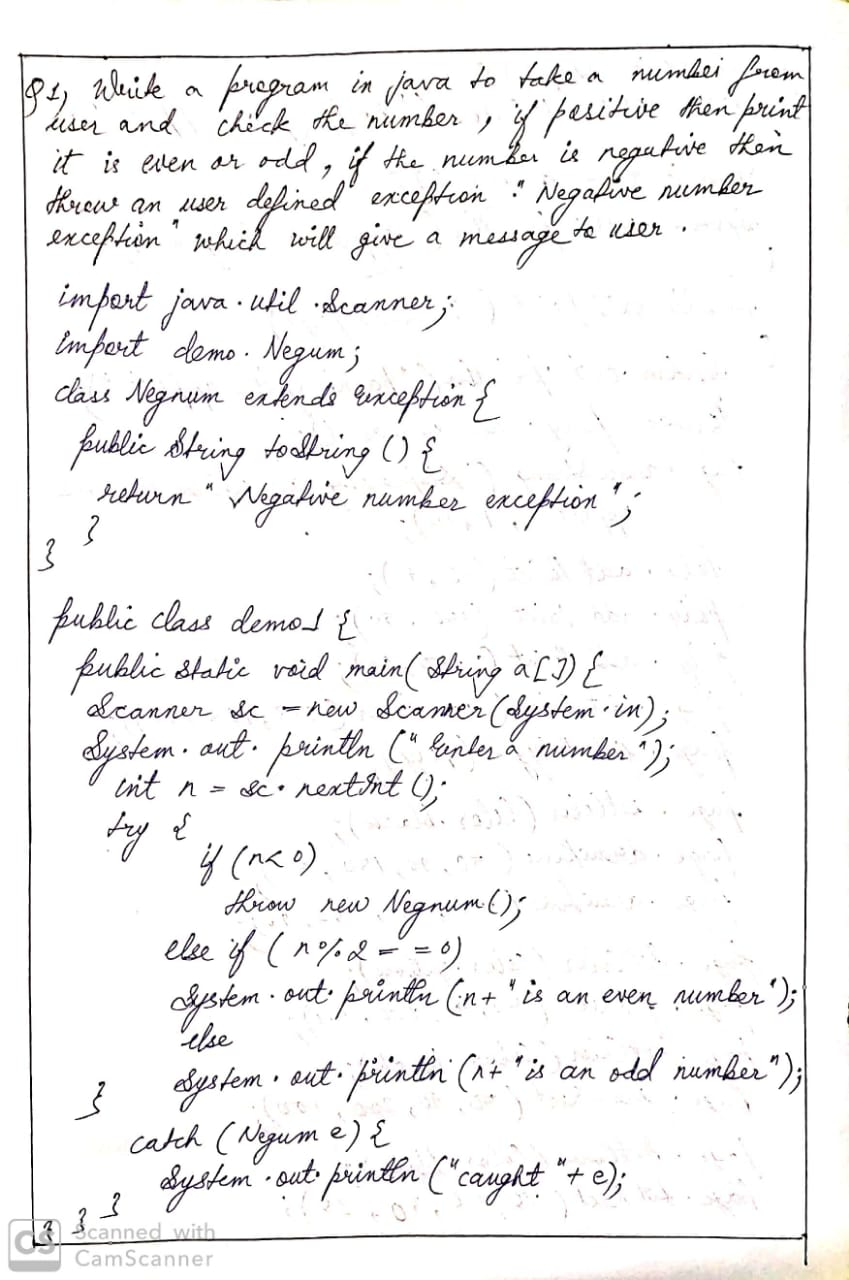 Q1, Write a program in java to take a number from
user and check the number, if positive then print
it is even or odd, if the number is negative then
throw an user defined exception "Negative number
exception" which will give a message to user.
import java.util.Scanner;
import demo.Negum;
class Negnum extends Exception {
public String toString () {
return "Negative number exception";
}
}
public class demo1 {
public static void main( String a[]) {
Scanner sc = new Scanner(System.in);
System.out.println ("Enter a number");
int n = sc.nextInt ();
try {
if (n<0)
throw new Negnum();
else if (n%2 == 0)
System.out.println (n+ "is an even number");
else
System.out.println (n+ "is an odd number");
}
catch (Negum e) {
System.out.println ("caught "+ e);
}
}
}
CS Scanned with
CamScanner